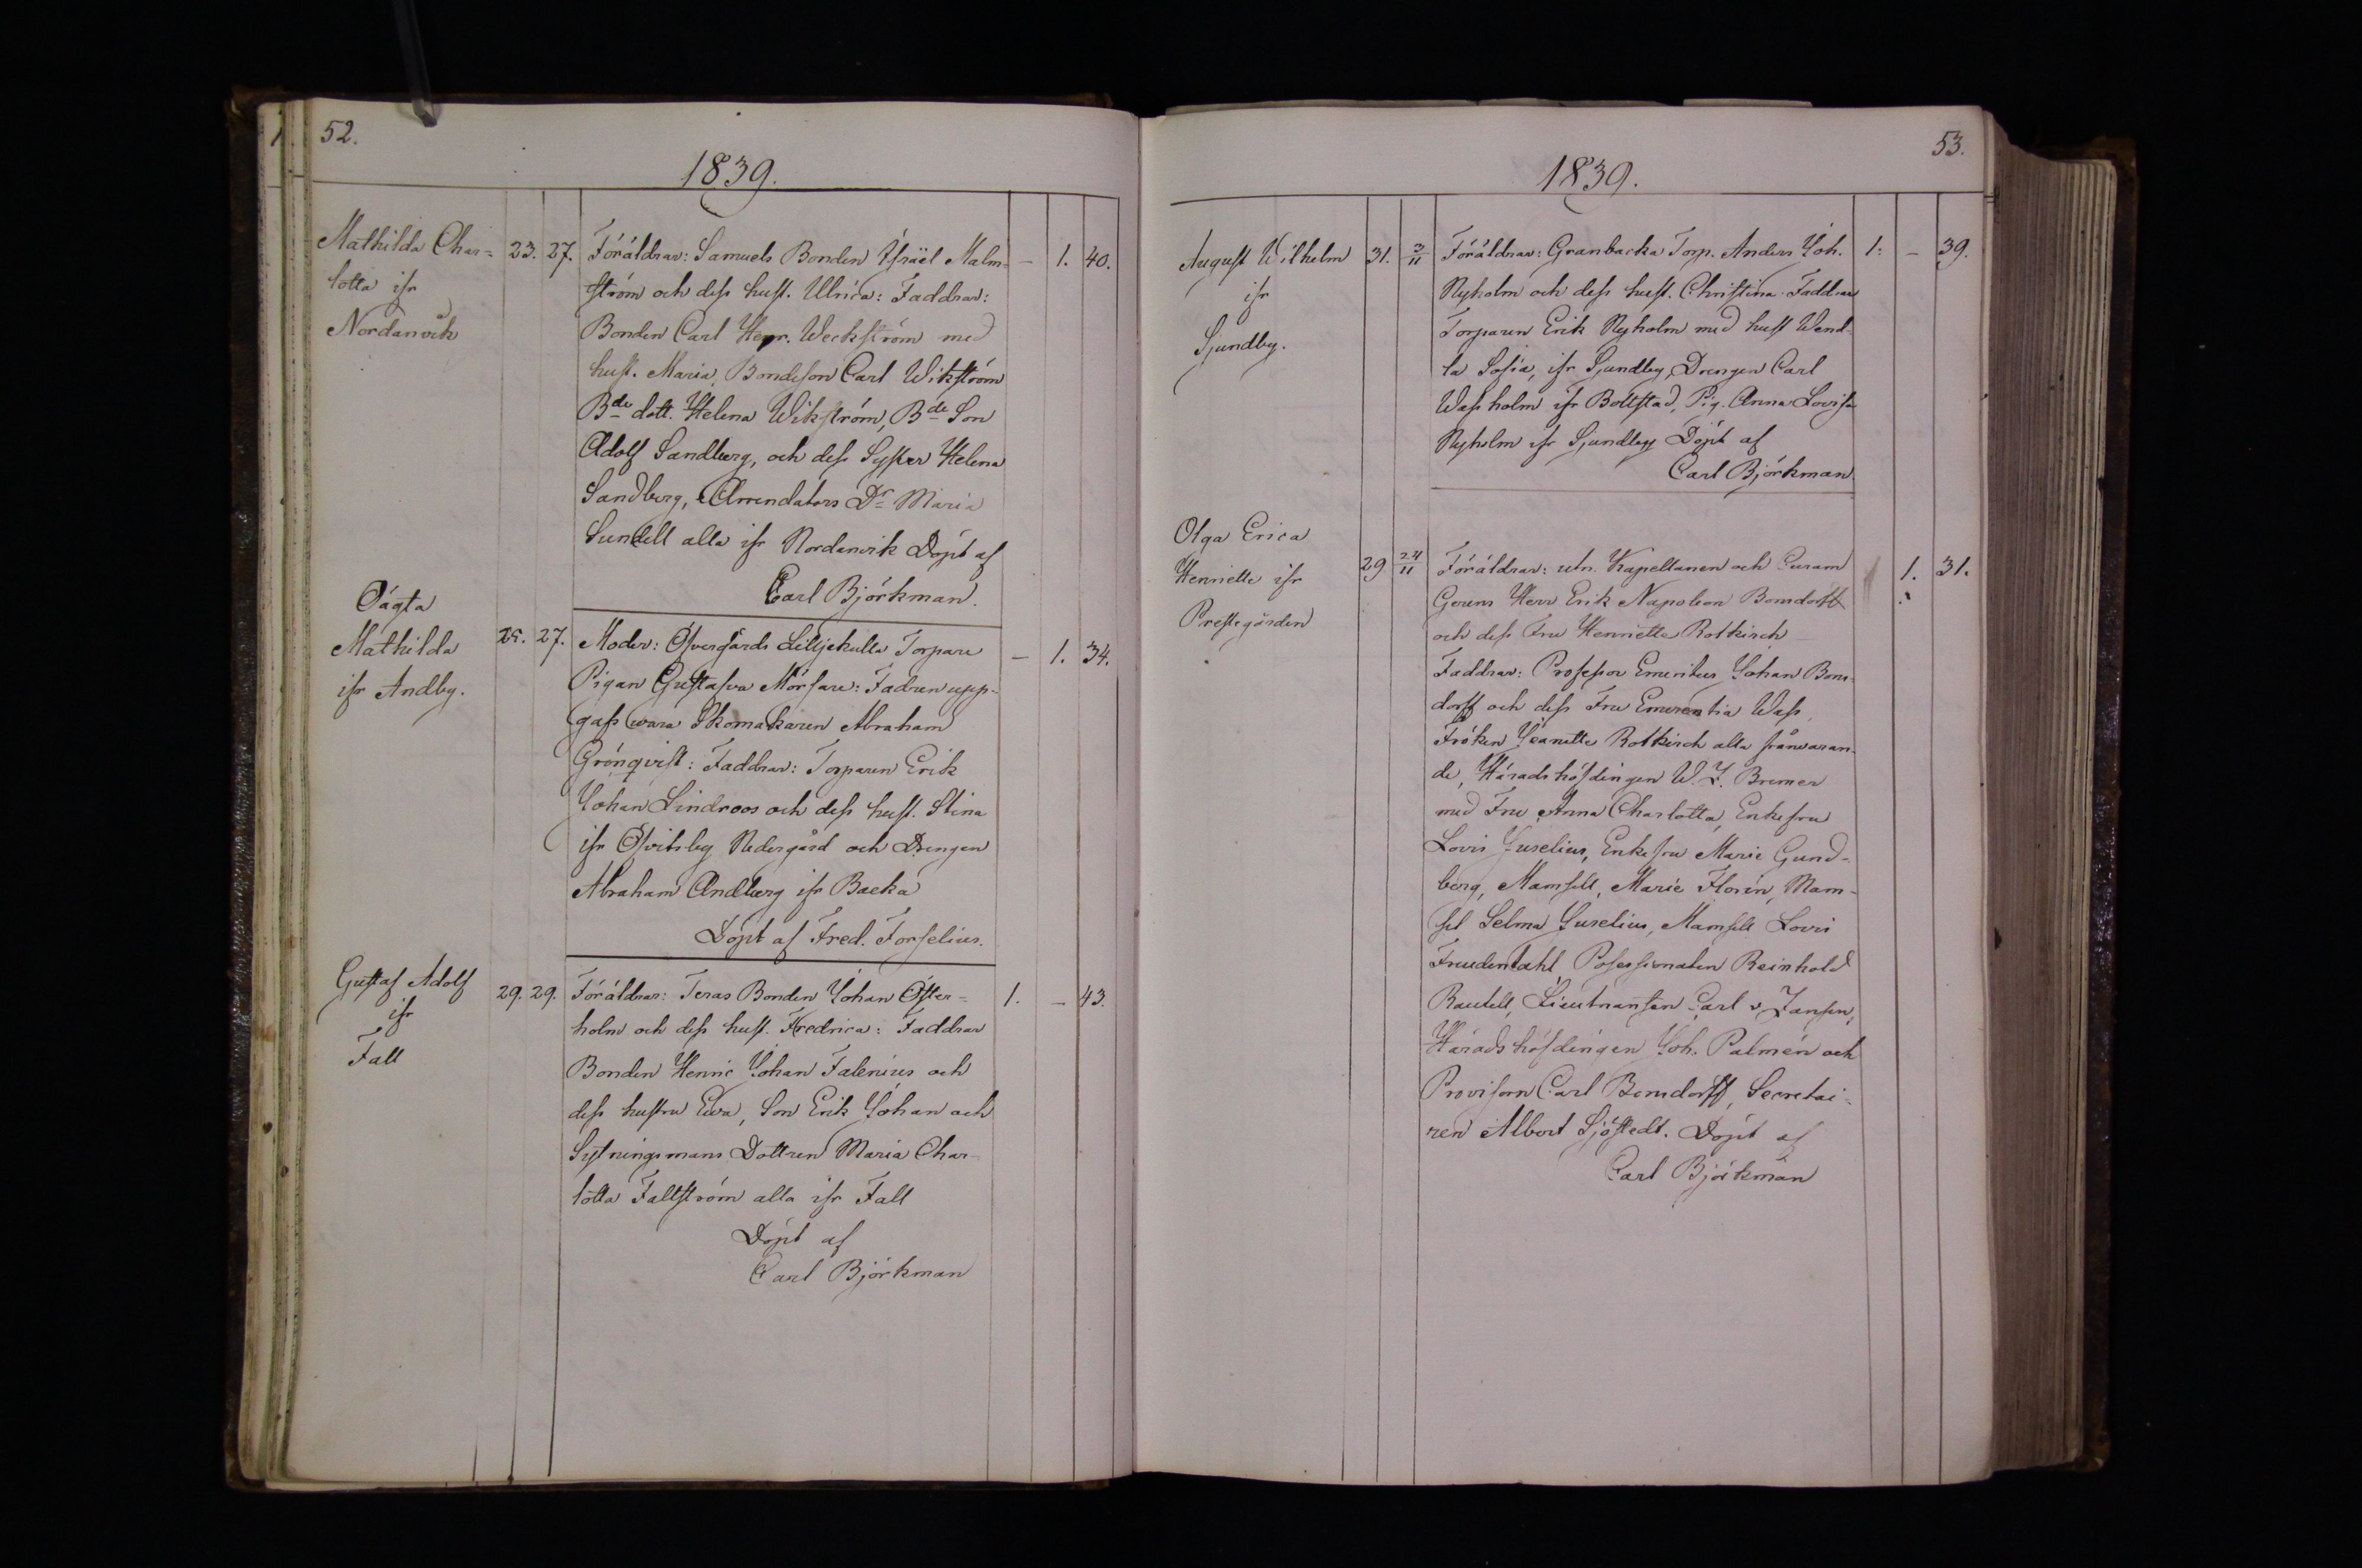 52.
1839.
Mathilda Char= 23. 27. Föräldrar: Samuels Bonden Isräel Malm= – 1. 40.
lotta ifr ström och dess hust. Ulrica: Faddrar:
Nordanvik Bonden Carl Henr. Weckström med
hust. Maria, Bondeson Carl Wikström
Bde dott. Helena Wikström, Bde Son
Adolf Sandberg, och dess Syster Helena
Sandberg, Arrendators Dr Maria
Sundell alla ifr Nordanvik Döpt af
Carl Björkman.
Oägta
Mathilda 25. 27. Moder: Öfvergårds Lilljekulla Torpare – 1. 34.
ifr Andby. Pigan Gustafva Mörfare: Fadren upp-
gafs wara Skomakaren Abraham
Grönqvist: Faddrar: Torparen Erik
Johan Lindroos och dess hust. Stina
ifr Öfvitsby Nedergård och Drengen
Abraham Andberg ifr Backa
Döpt af Fred. Forselius.
Gustaf Adolf 29. 29. Föräldrar: Teras Bonden Johan Öster= 1. – 43.
ifr holm och dess hust. Fredrica: Faddrar
Fall Bonden Henric Johan Falenius och
dess hustru Ewa, Son Erik Johan och
Sytningsmans Dottren Maria Char-
lotta Fallström alla ifr Fall
Döpt af
Carl Björkman
53.
1839.
August Wilhelm 31. 3/11 Föräldrar: Granbacka Torp. Anders Joh. 1. – 39.
ifr Nyholm och dess hust. Christina Faddrar
Sjundby. Torparen Erik Nyholm med hust Wend-
la Sofia, ifr Sjundby, Drengen Carl
Wassholm ifr Bollstad, Pig. Anna Lovisa
Nyholm ifr Sjundby Döpt af
Carl Björkman.
Olga Erica
Henriette ifr 29 24/11 Föräldrar: utn. Kapellanen och Curam 1. 31.
Prestegården Gerens Herr Erik Napoleon Bonsdorff
och dess Fru Henriette Rotkirch
Faddrar: Professor Emeritus Johan Bons-
dorff och dess Fru Emerentia Wass,
Fröken Jeanette Rotkirch alla frånvaran-
de, Häradshöfdingen W. F. Bremer
med Fru Anna Charlotta, Enkefru
Lovis Juselius, Enkefru Marie Gund-
berg, Mamsell, Marie Florin, Mam-
sel Selma Juselius, Mamsell Lovis
Freudentahl, Possessionaten Reinhold
Rautell, Lieutnanten Carl v. Jansen,
Häradshöfdingen Joh. Palmén och
Provisorn Carl Bonsdorff, Secretai-
ren Albert Sjöstedt. Döpt af
Carl Björkman